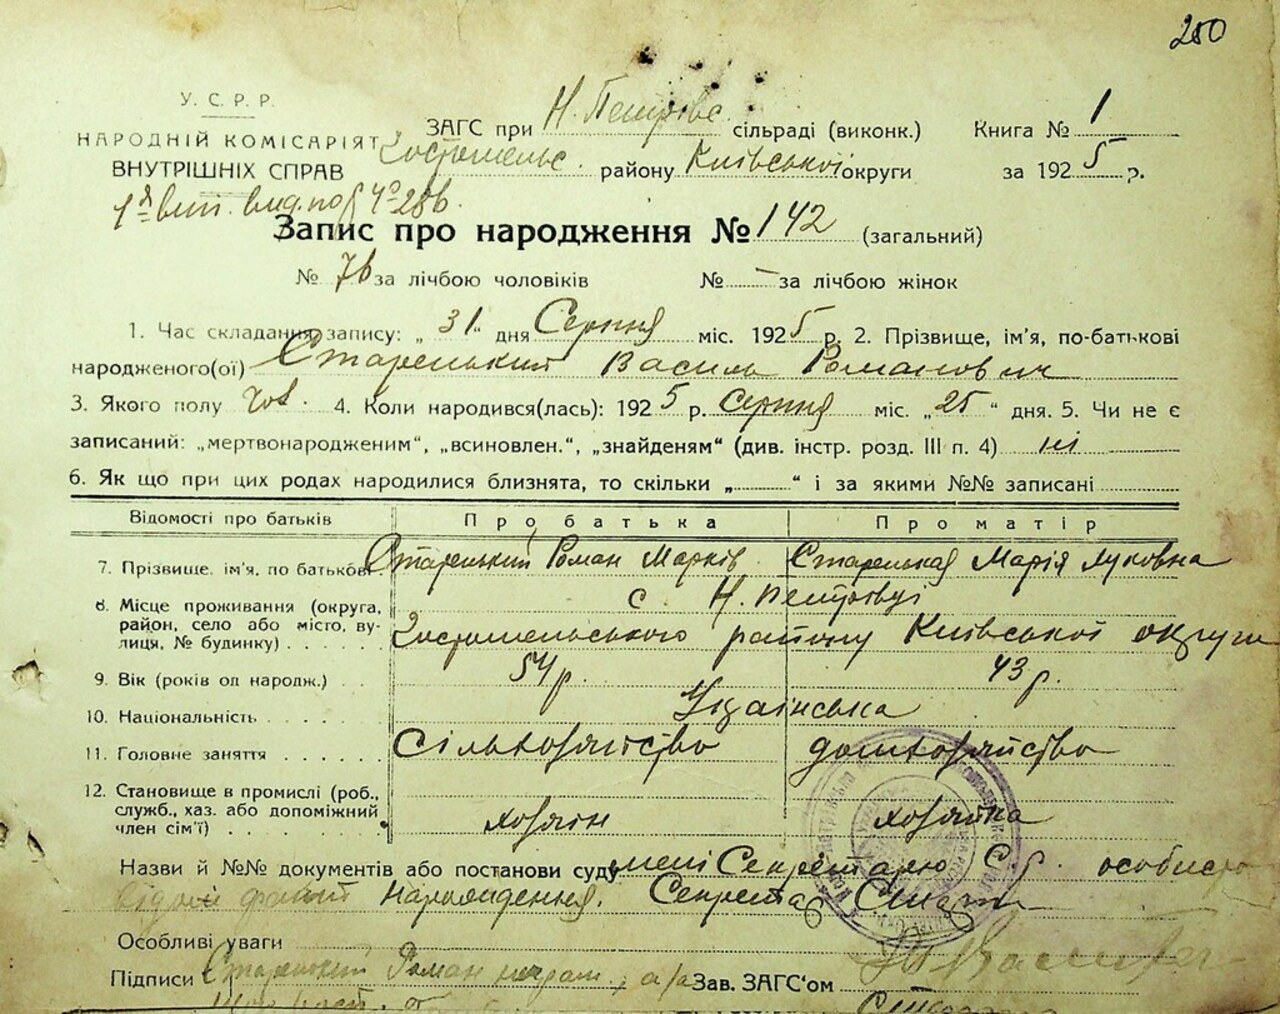 250
У. С. Р. Р.
НАРОДНІЙ КОМІСАРІЯТ
ВНУТРІШНІХ СПРАВ
ЗАГС при Н. Петрівс. сільраді (виконк.) Книга № 1
Гостомельс. району Київської округи за 1925 р.
Запис про народження № 142 (загальний)
№ 76 за лічбою чоловіків № – за лічбою жінок
1. Час складання запису: „31“ дня Серпня міс. 1925 р. 2. Прізвище, ім'я, по-батькові
народженого(ої) Старенький Василь Романович
3. Якого полу чол. 4. Коли народився(лась): 1925 р. Серпня міс. „25“ дня. 5. Чи не є
записаний: „мертвонародженим“, „всиновлен.“, „знайденям“ (див. інстр. розд. III п. 4) ні
6. Як що при цих родах народилися близнята, то скільки „ “ і за якими №№ записані
Відомості про батьків Про батька Про матір
7. Прізвище, ім'я, по батькові. Старенький Роман Марків. Старенькая Марія Луковна
8. Місце проживання (округа, район, село або місто, вулиця, № будинку) с. Н. Петрівці
Гостомельського району Київської округи
9. Вік (років од народж.) 54 р. 43 р.
10. Національність Українська
11. Головне заняття Сільхозяйство домхозяйство
12. Становище в промислі (роб., служб., хаз. або допоміжний член сім'ї) хозяїн хозяйка
Назви й №№ документів або постанови суду мені Секретарю С.р. особисто
відомі факт народження. Секретар
Особливі уваги
Підписи Старенький Роман Зав. ЗАГС'ом